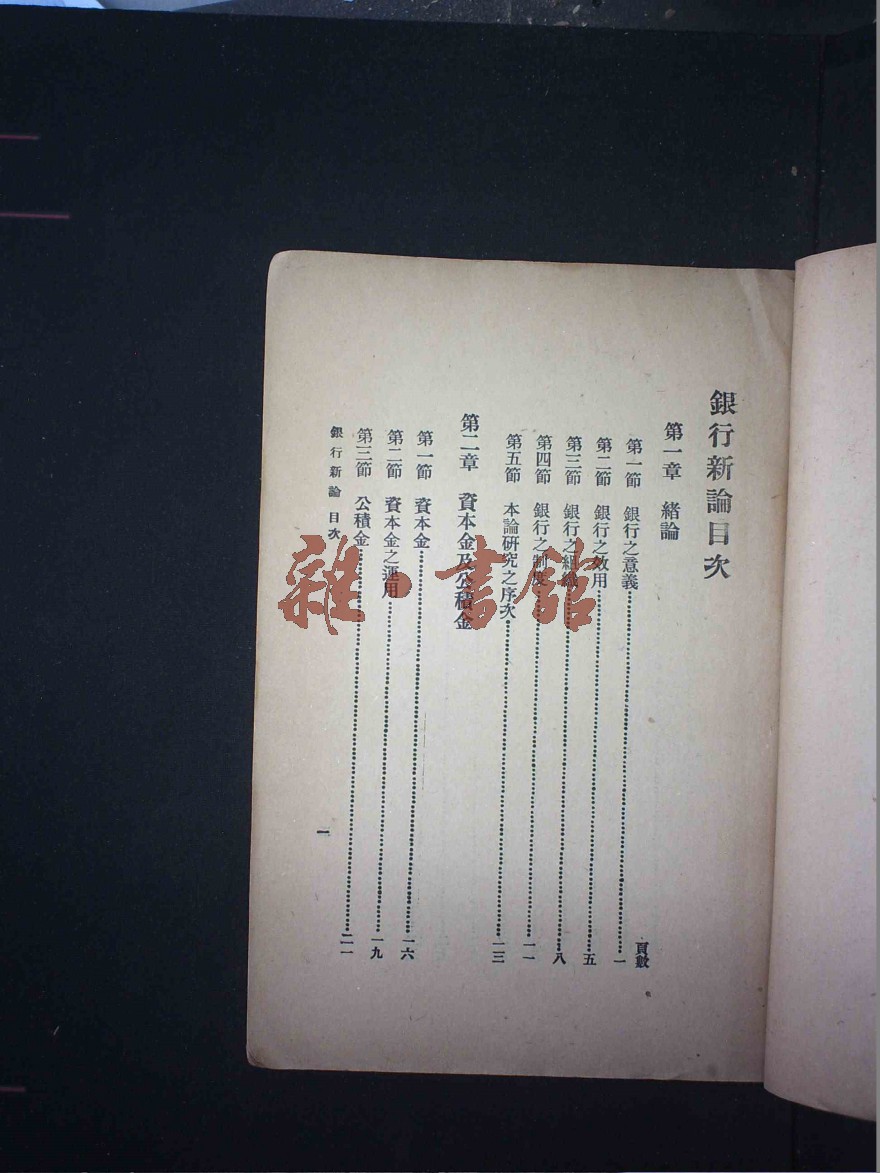 銀行新論目次
第一章　緒論
頁數
第一節　銀行之意義……一
第二節　銀行之效用……五
第三節　銀行之組織……八
第四節　銀行之制度……一一
第五節　本論研究之序次……一三
第二章　資本金及公積金
第一節　資本金……一六
第二節　資本金之運用……一九
第三節　公積金……二一
銀行新論　目次
一
雜·書館